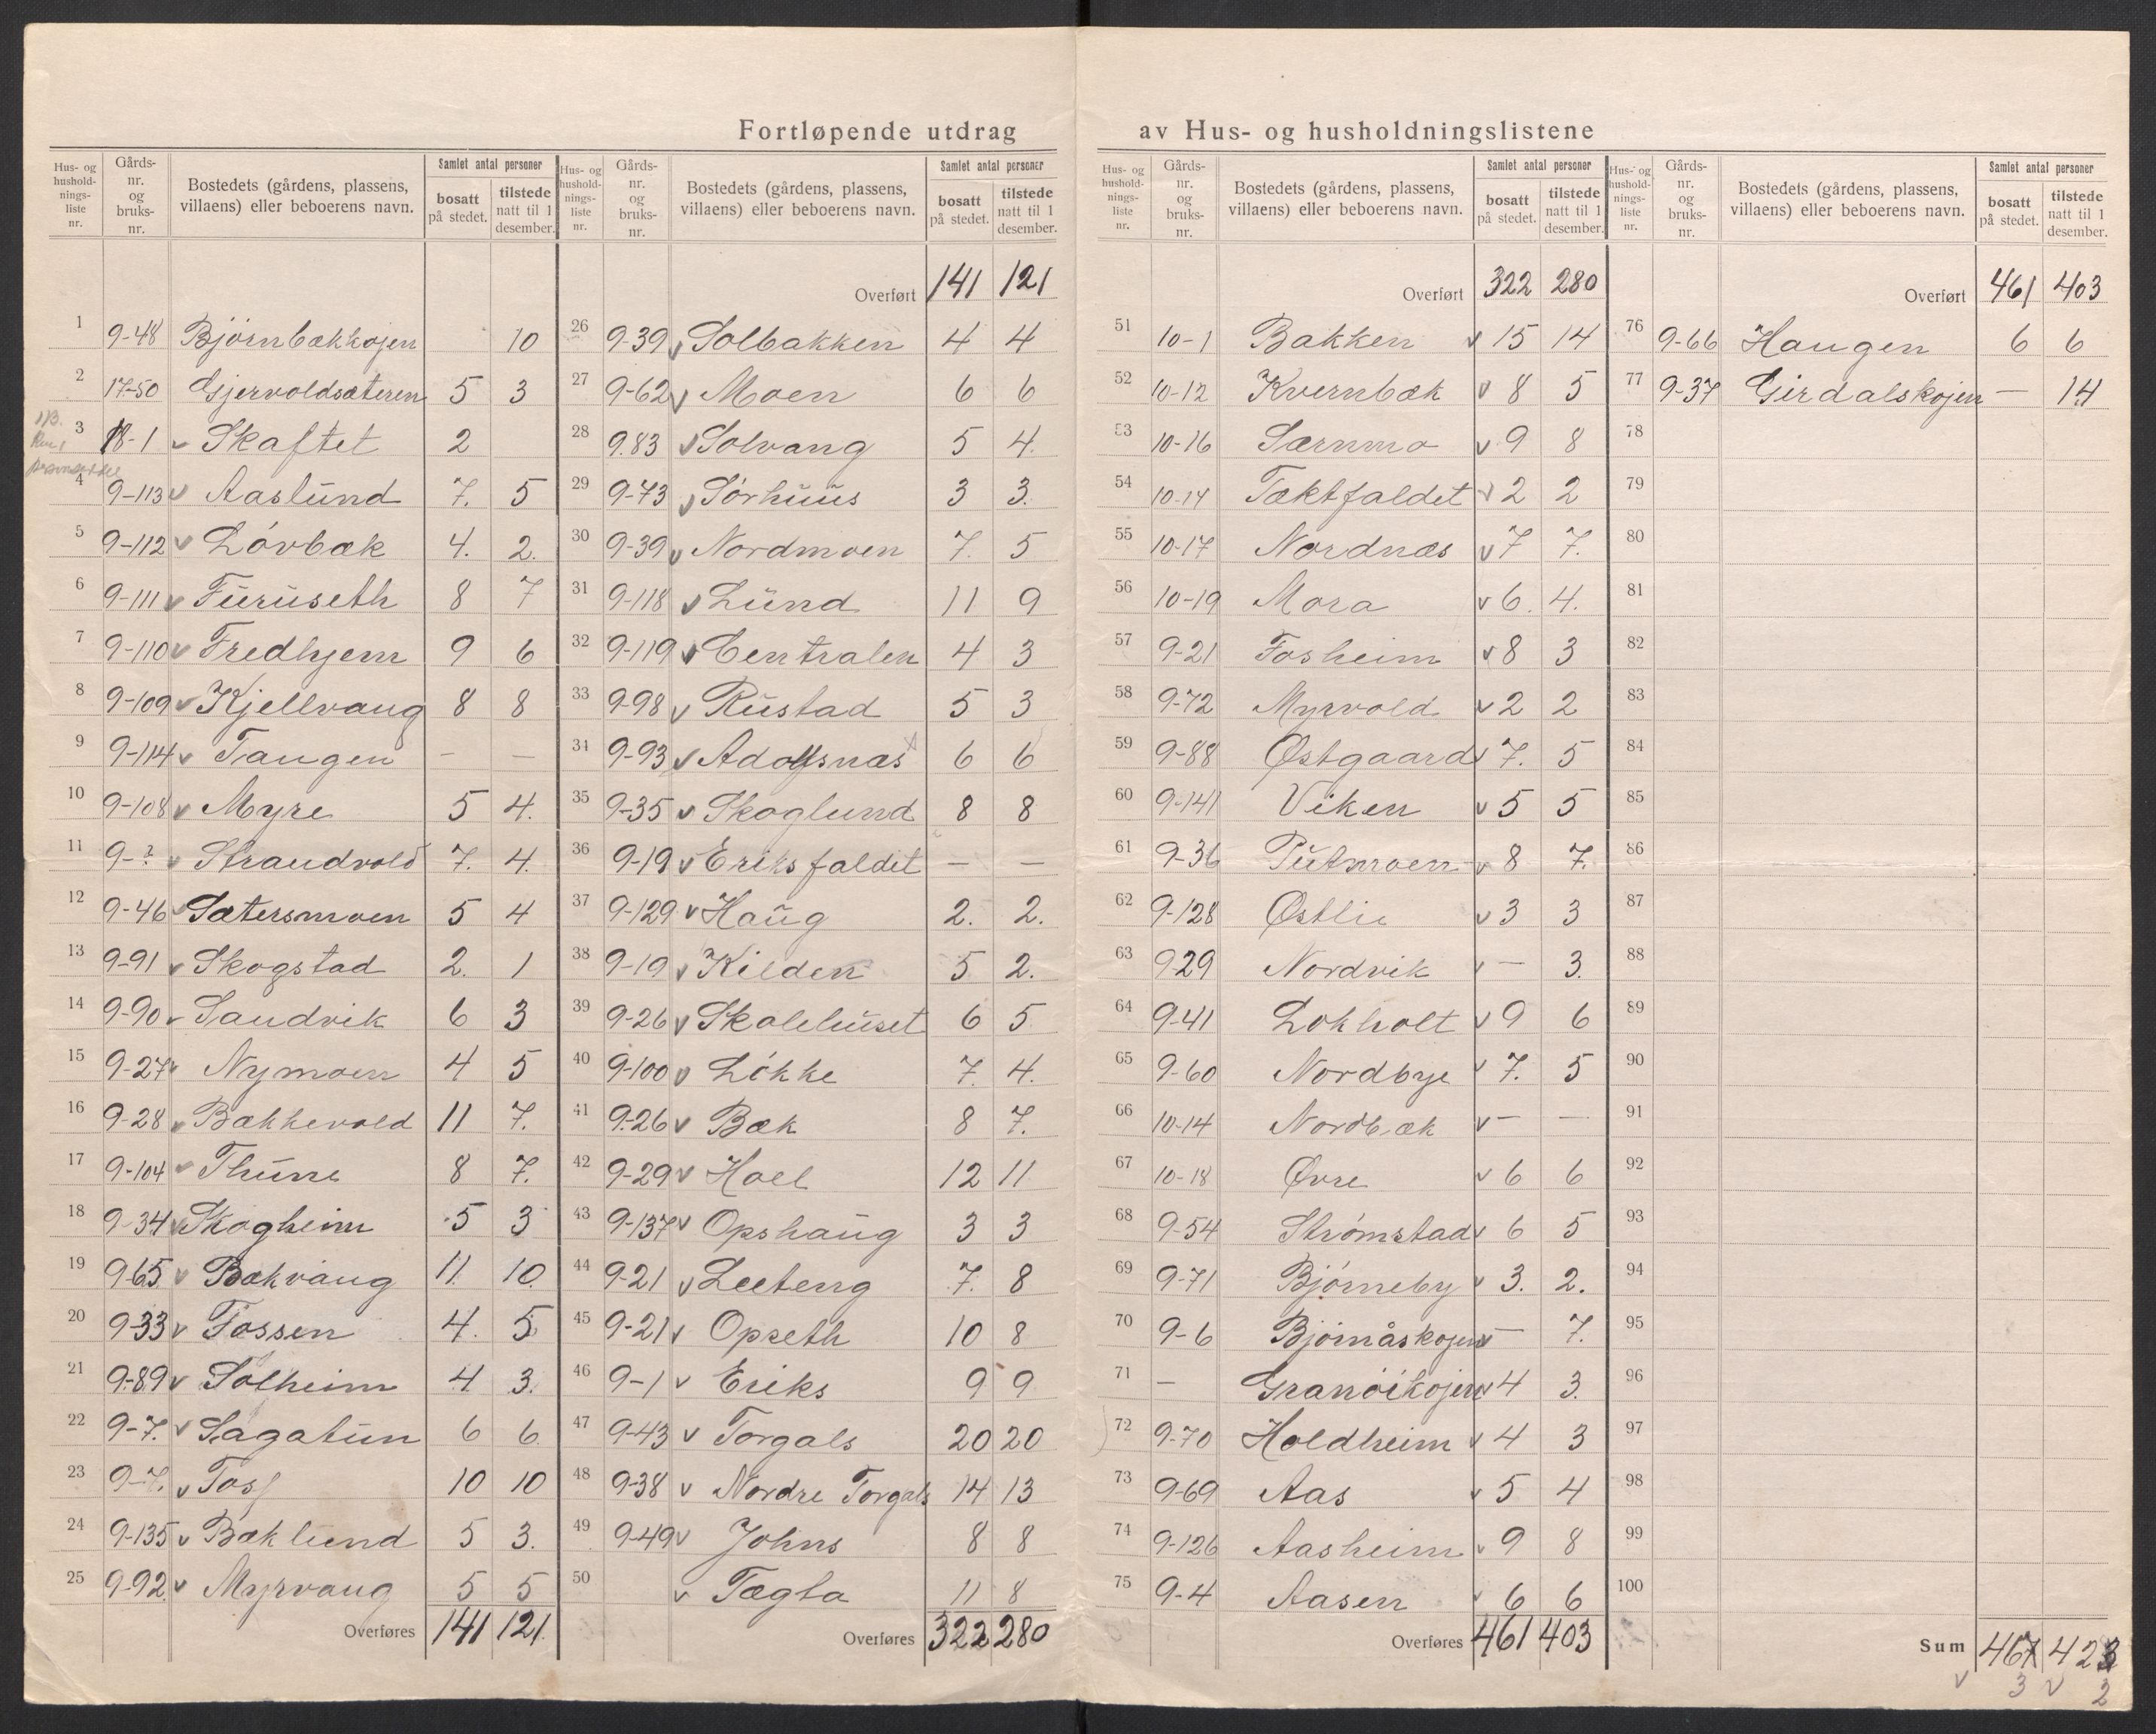 Fortløpende utdrag av Hus- og husholdningslistene
Hus- og husholdnings-liste nr. | Gårds-nr. og bruks-nr. | Bostedets (gårdens, plassens, villaens) eller beboerens navn. | Samlet antal personer | bosatt på stedet. | tilstede natt til 1 desember.
1 9-48 Bjørnbækkojen 10
2 17-50 Gjervoldsæteren 5 3
3 18-1 Skaftet 2
4 9-113 v Aaslund 7. 5
5 9-112 v Løvbæk 4. 2.
6 9-111 v Furuseth 8 7
7 9-110 v Fredhjem 9 6
8 9-109 v Kjellvang 8 8
9 9-114 v Tangen — —
10 9-108 v Myre 5 4.
11 9-? v Strandvold 7. 4.
12 9-46 v Sætersmoen 5 4
13 9-91 v Skogstad 2. 1
14 9-90 v Sandvik 6 3
15 9-27 v Nymoen 4 5
16 9-28 v Bækkevold 11 7.
17 9-104 v Thune 8 7.
18 9-34 v Skogheim 5 3
19 9-65 v Bækvang 11. 10.
20 9-33 v Fossen 4. 5
21 9-89 v Solheim 4 3.
22 9-7. v Sagatun 6 6
23 9-7. v Foss 10 10
24 9-135 v Bæklund 5 3.
25 9-92 v Myrvang 5 5
Overføres 141 121.
Hus- og husholdnings-liste nr. | Gårds-nr. og bruks-nr. | Bostedets (gårdens, plassens, villaens) eller beboerens navn. | Samlet antal personer | bosatt på stedet. | tilstede natt til 1 desember.
Overført 141 121
26 9-39 v Solbakken 4 4
27 9-62 v Moen 6 6
28 9.83 v Solvang 5 4.
29 9-73 v Sørhuus 3 3.
30 9-39 v Nordmoen 7. 5
31 9-118 v Lund 11 9
32 9-119 v Centralen 4 3
33 9-98 v Rustad 5 3
34 9-93 v Adolfsnæs 6 6
35 9-35 v Skoglund 8 8
36 9-19 v Eriksfaldet — —
37 9-129 v Haug 2. 2.
38 9-19 v Kilden 5 2.
39 9-26 v Skolehuset 6 5
40 9-100 v Løkke 7. 4.
41 9-26 v Bæk 8 7.
42 9-29 v Hoel 12 11
43 9-137 v Opshaug 3 3
44 9-21 v Leeteng 7. 8
45 9-21 v Opseth 10 8
46 9-1 v Eriks 9 9
47 9-43 v Torgals 20 20
48 9-38 v Nordre Torgals 14 13
49 9-49 v Johns 8 8
50 v Tægta 11 8
Overføres 322 280
Hus- og husholdnings-liste nr. | Gårds-nr. og bruks-nr. | Bostedets (gårdens, plassens, villaens) eller beboerens navn. | Samlet antal personer | bosatt på stedet. | tilstede natt til 1 desember.
Overført 322 280
51 10-1 Bakken v 15 14
52 10-12 Kvernbæk v 8 5
53 10-16 Særnmo v 9 8
54 10-14 Tæktfaldet v 2 2
55 10-17 Nordnæs v 7 7.
56 10-19 Mora v 6. 4.
57 9-21 Fosheim v 8 3
58 9-72 Myrvold v 2 2
59 9-88 Østgaard v 7. 5
60 9-141 Viken v 5 5
61 9-36 Putmoen v 8 7.
62 9-128 Østlie v 3 3
63 929 Nordvik v — 3.
64 9-41 Lokholt v 9 6
65 9-60 Nordbye v 7. 5
66 10-14 Nordbæk v — —
67 10-18 Øvre v 6 6
68 9-54 Strømstad v 6 5
69 9-71 Bjørneby v 3. 2.
70 9-6 Bjørnåskojen v — 7.
71 — Granøikojen v 4 3.
72 9-70 Holdheim v 4 3
73 9-69 Aas v 5 4
74 9-126 Aasheim v 9 8
75 9-4 Aasen v 6 6
Overføres 461 403
Hus- og husholdnings-liste nr. | Gårds-nr. og bruks-nr. | Bostedets (gårdens, plassens, villaens) eller beboerens navn. | Samlet antal personer | bosatt på stedet. | tilstede natt til 1 desember.
Overført 461 403
76 9-66 Haugen 6 6
77 9-37 Girdalskojen — 14
78
79
80
81
82
83
84
85
86
87
88
89
90
91
92
93
94
95
96
97
98
99
100
Sum 467 423
v 3 v 2